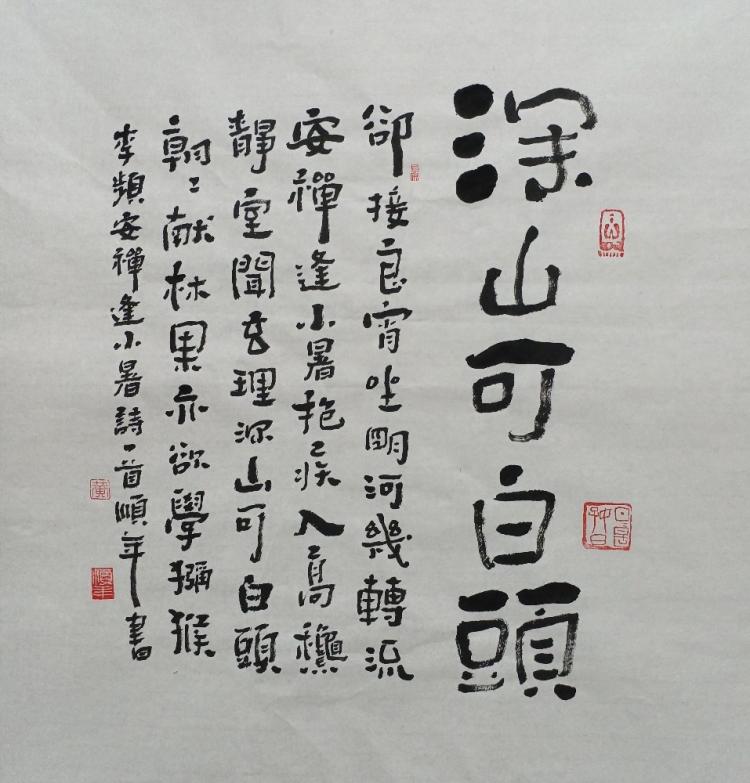 深山可白頭
卻接良宵坐明河幾轉流
安禪逢小暑抱疾入高穐
靜室聞玄理深山可白頭
朝〻献林果亦欲學獼猴
李頻安禪逢小暑詩一首順年書
黄
順年